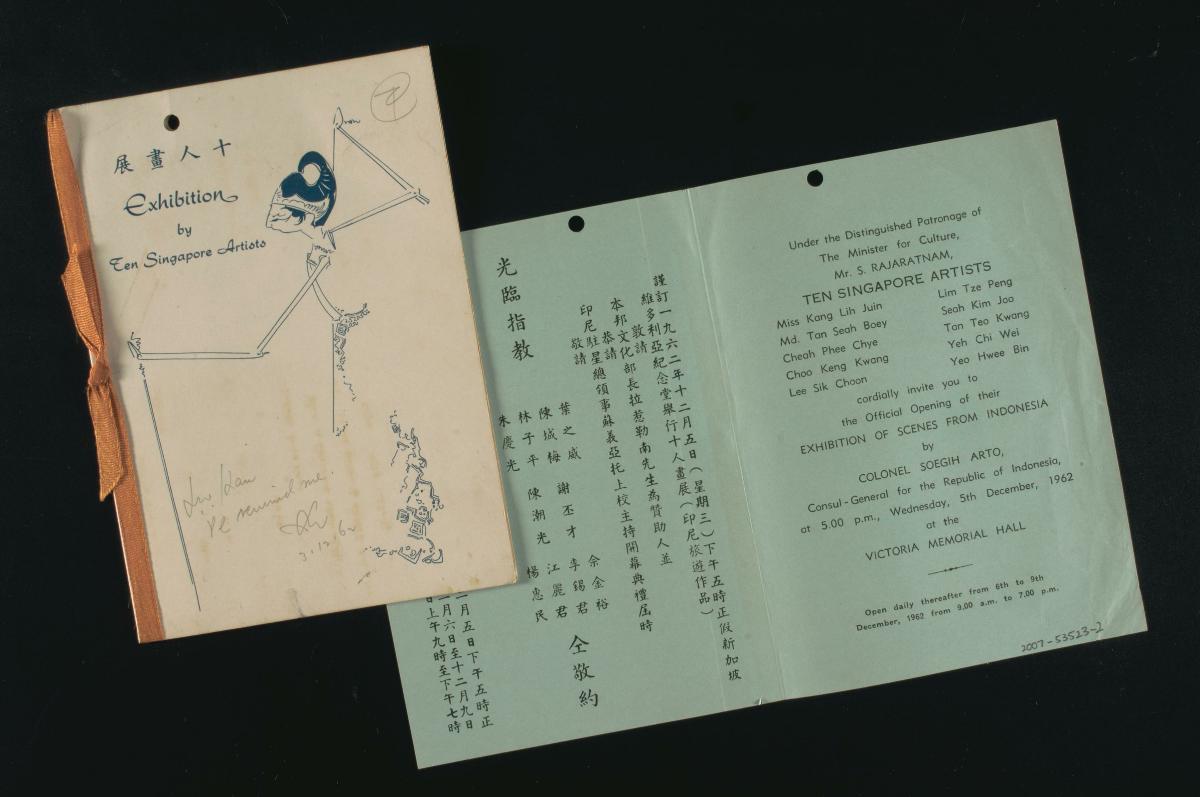 十人畫展
Exhibition
by
Ten Singapore Artists
3.12.62
謹訂一九六二年十二月五日(星期三)下午五時正假新加坡
維多利亞紀念堂舉行十人畫展(印尼旅遊作品)
敦請
本邦文化部長拉惹勒南先生為贊助人並
恭請
印尼駐星總領事蘇義亞托上校主持開幕典禮屆時
敬請
光臨指教
葉之威 謝丕才 佘金裕
陳城梅 李錫君
林子平 陳潮光 江麗君
朱慶光 楊惠民
仝敬約
月五日下午五時正
月六日至十二月九日
日上午九時至下午七時
Under the Distinguished Patronage of
The Minister for Culture,
Mr. S. RAJARATNAM,
TEN SINGAPORE ARTISTS
Miss Kang Lih Juin Lim Tze Peng
Md. Tan Seah Boey Seah Kim Joo
Cheah Phee Chye Tan Teo Kwang
Choo Keng Kwang Yeh Chi Wei
Lee Sik Choon Yeo Hwee Bin
cordially invite you to
the Official Opening of their
EXHIBITION OF SCENES FROM INDONESIA
by
COLONEL SOEGIH ARTO,
Consul-General for the Republic of Indonesia,
at 5.00 p.m., Wednesday, 5th December, 1962
at the
VICTORIA MEMORIAL HALL
Open daily thereafter from 6th to 9th
December, 1962 from 9.00 a.m. to 7.00 p.m.
2007-53523-2